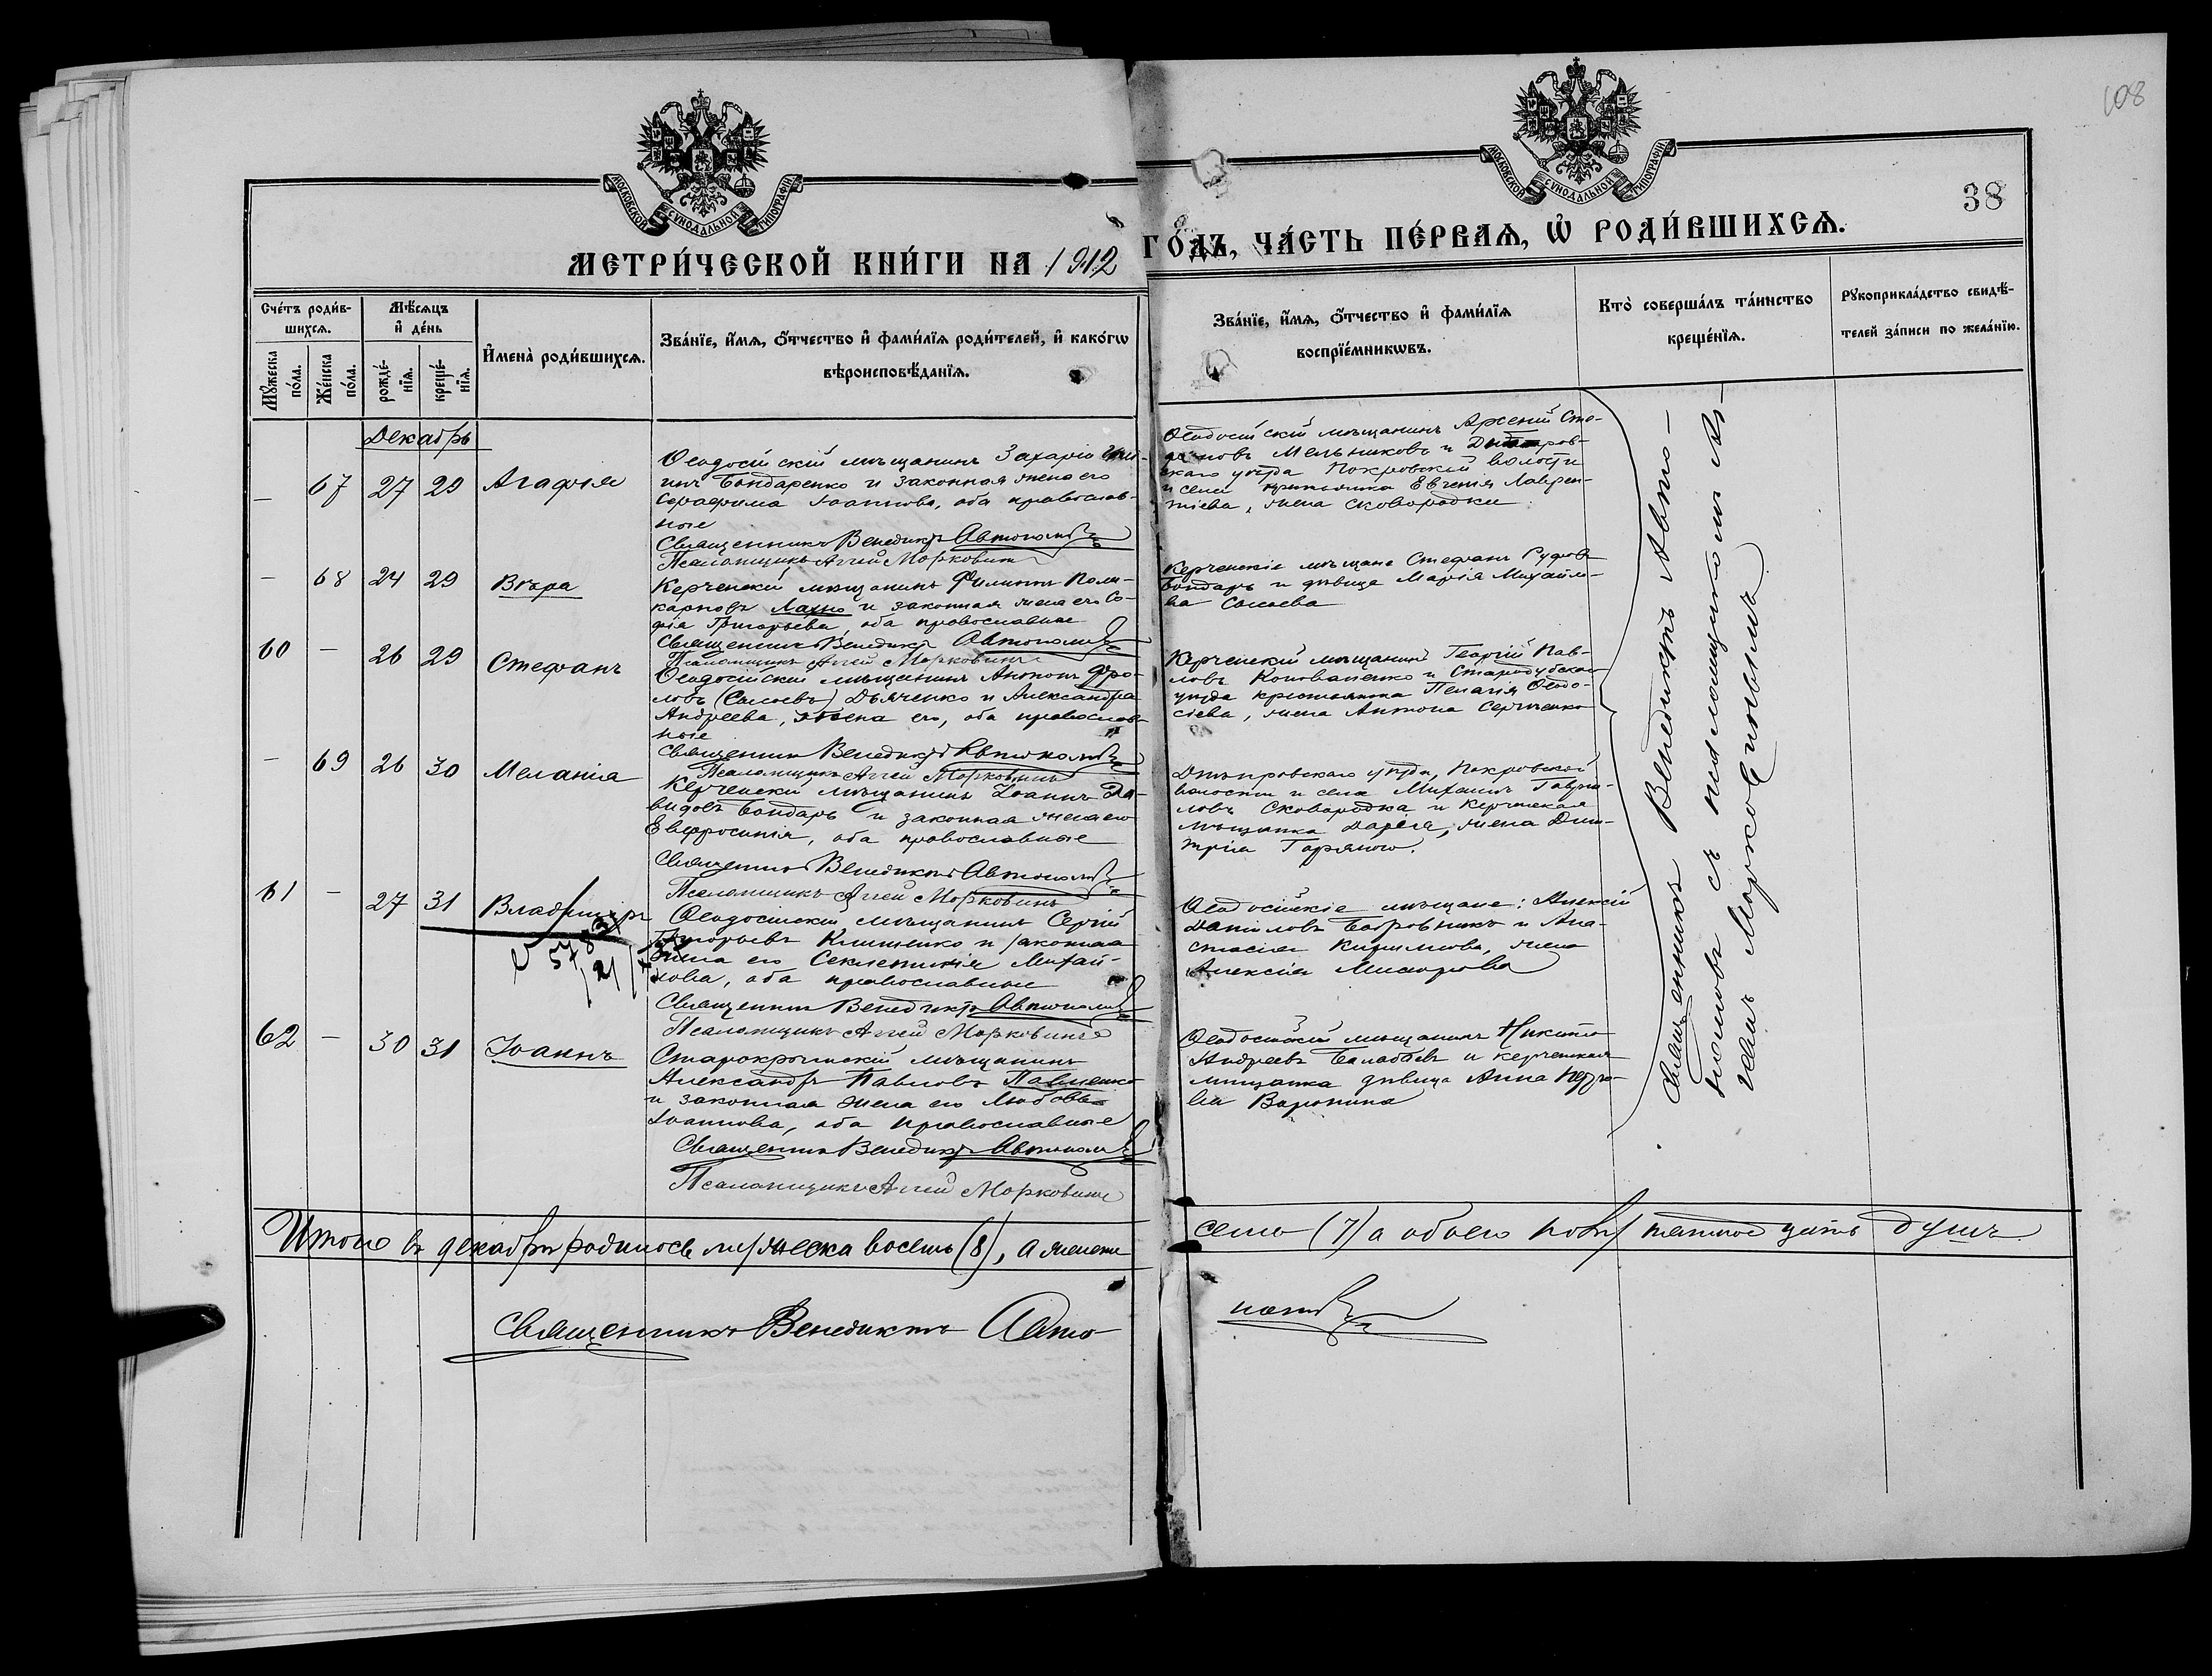 108
38
МОСКОВСКОЙ СѴНОДАЛЬНОЙ ТИПОГРАФІИ
МОСКОВСКОЙ СѴНОДАЛЬНОЙ ТИПОГРАФІИ
МЕТРИ́ЧЕСКОЙ КНИ́ГИ НА 1912 ГО́ДЪ, ЧА́СТЬ ПЕ́РВАѦ, Ѡ҆ РОДИ́ВШИХСѦ.
Сче́тъ роди́в-
шихсѧ.
Мꙋ́жеска по́ла.
Же́нска по́ла.
Мѣ́сѧцъ и҆ де́нь
рожде́-
нїѧ.
креще́-
нїѧ.
И҆мена̀ роди́вшихсѧ.
Зва́нїе, и҆́мѧ, ѻ҆́тчество и҆ фами́лїѧ роди́телей, и҆ како́гѡ
вѣроисповѣ́данїѧ.
Зва́нїе, и҆́мѧ, ѻ҆́тчество и҆ фами́лїѧ
воспрїе́мникѡвъ.
Кто̀ соверша́лъ та́инство
креще́нїѧ.
Рꙋкоприкла́дство свидѣ́-
телей за́писи по жела́нїю.
Декабрь
— 67 27 29 Агафія
Ѳеодосійскій мѣщанинъ Захарія
Бондаренко и законная жена его
Серафима Іоаннова, оба православ-
ные
Священникъ Венедиктъ Автономовъ
Псаломщикъ Аггей Морковинъ
Ѳеодосійскій мѣщанинъ Арсеній Сте-
фановъ Мельниковъ и Днѣпров-
скаго уѣзда Покровской волости
и села крестьянка Евгенія Лаврен-
тіева, жена Сковородки
— 68 24 29 Вѣра
Керченскій мѣщанинъ Филиппъ Поли-
карповъ Лахно и законная жена его Со-
фія Григорьева, оба православные
Священникъ Венедиктъ Автономовъ
Псаломщикъ Аггей Морковинъ
Керченскіе мѣщане Стефанъ Руфовъ
Бондарь и дѣвица Марія Михайло-
ва
60 — 26 29 Стефанъ
Ѳеодосійскій мѣщанинъ Антонъ Фро-
ловъ Дьяченко и Александра
Андреева, жена его, оба православ-
ные
Священникъ Венедиктъ Автономовъ
Псаломщикъ Аггей Морковинъ
Керченскій мѣщанинъ Георгій Пав-
ловъ Коноваленко и Стародубскаго
уѣзда крестьянка Пелагія Ѳеодо-
сіева, жена Антона Сергіенко
— 69 26 30 Меланія
Керченскій мѣщанинъ Іоаннъ Да-
видовъ Бондарь и законная жена его
Евфросинія, оба православные
Священникъ Венедиктъ Автономовъ
Псаломщикъ Аггей Морковинъ
Днѣпровскаго уѣзда, Покровской
волости и села Михаилъ Гаври-
ловъ Сковородка и Керченская
мѣщанка Дарія, жена Дми-
трія
61 — 27 31 Владиміръ
Ѳеодосійскій мѣщанинъ Сергій
Григорьевъ Клименко и законная
жена его Секлетинія Михай-
лова, оба православные
Священникъ Венедиктъ Автономовъ
Псаломщикъ Аггей Морковинъ
Ѳеодосійскіе мѣщане: Алексій
Даниловъ Бобровникъ и Ана-
стасія Кириллова, жена
Алексія
62 — 30 31 Іоаннъ
Старокрымскій мѣщанинъ
Александръ Павловъ Павленко
и законная жена его Любовь
Іоаннова, оба православные
Священникъ Венедиктъ Автономовъ
Псаломщикъ Аггей Морковинъ
Ѳеодосійскій мѣщанинъ Никита
Андреевъ Балабаевъ и керченская
мѣщанка дѣвица Анна
Воронина
Священникъ Венедиктъ Авто-
номовъ съ псаломщикомъ Аг-
геемъ Морковинымъ
Итого въ декабрѣ родилось мужеска восемь (8), а женска семь (7) а обоего пола пятнадцать душъ.
Священникъ Венедиктъ Автономовъ